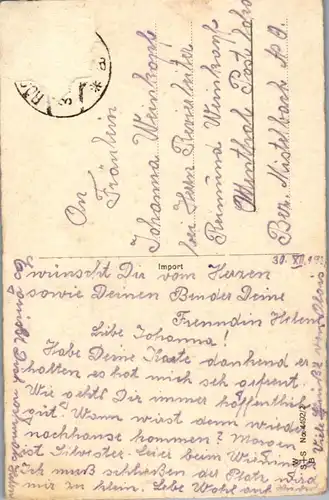 An
Fräulein
Johanna Weinkopf
bei Herrn Revierleiter
Raimund Weinkopf
Wenthal Post
Bez. Mistelbach N.Ö.
Import
30. XII. 19
wünscht Dir vom Herzen
sowie Deinen Bruder Deine
Freundin Helene
Liebe Johanna!
Habe Deine Karte dankend er
halten es hat mich seh gefreut.
Wie gehts Dir immer hoffentlich
gut? Wann wirst denn wieder
nachhause kommen? Morgen
ist Silvester.
ich muß schließen der Platz wird
mir zu klein. Lebe Wohl auf
Viele
No 4402/2